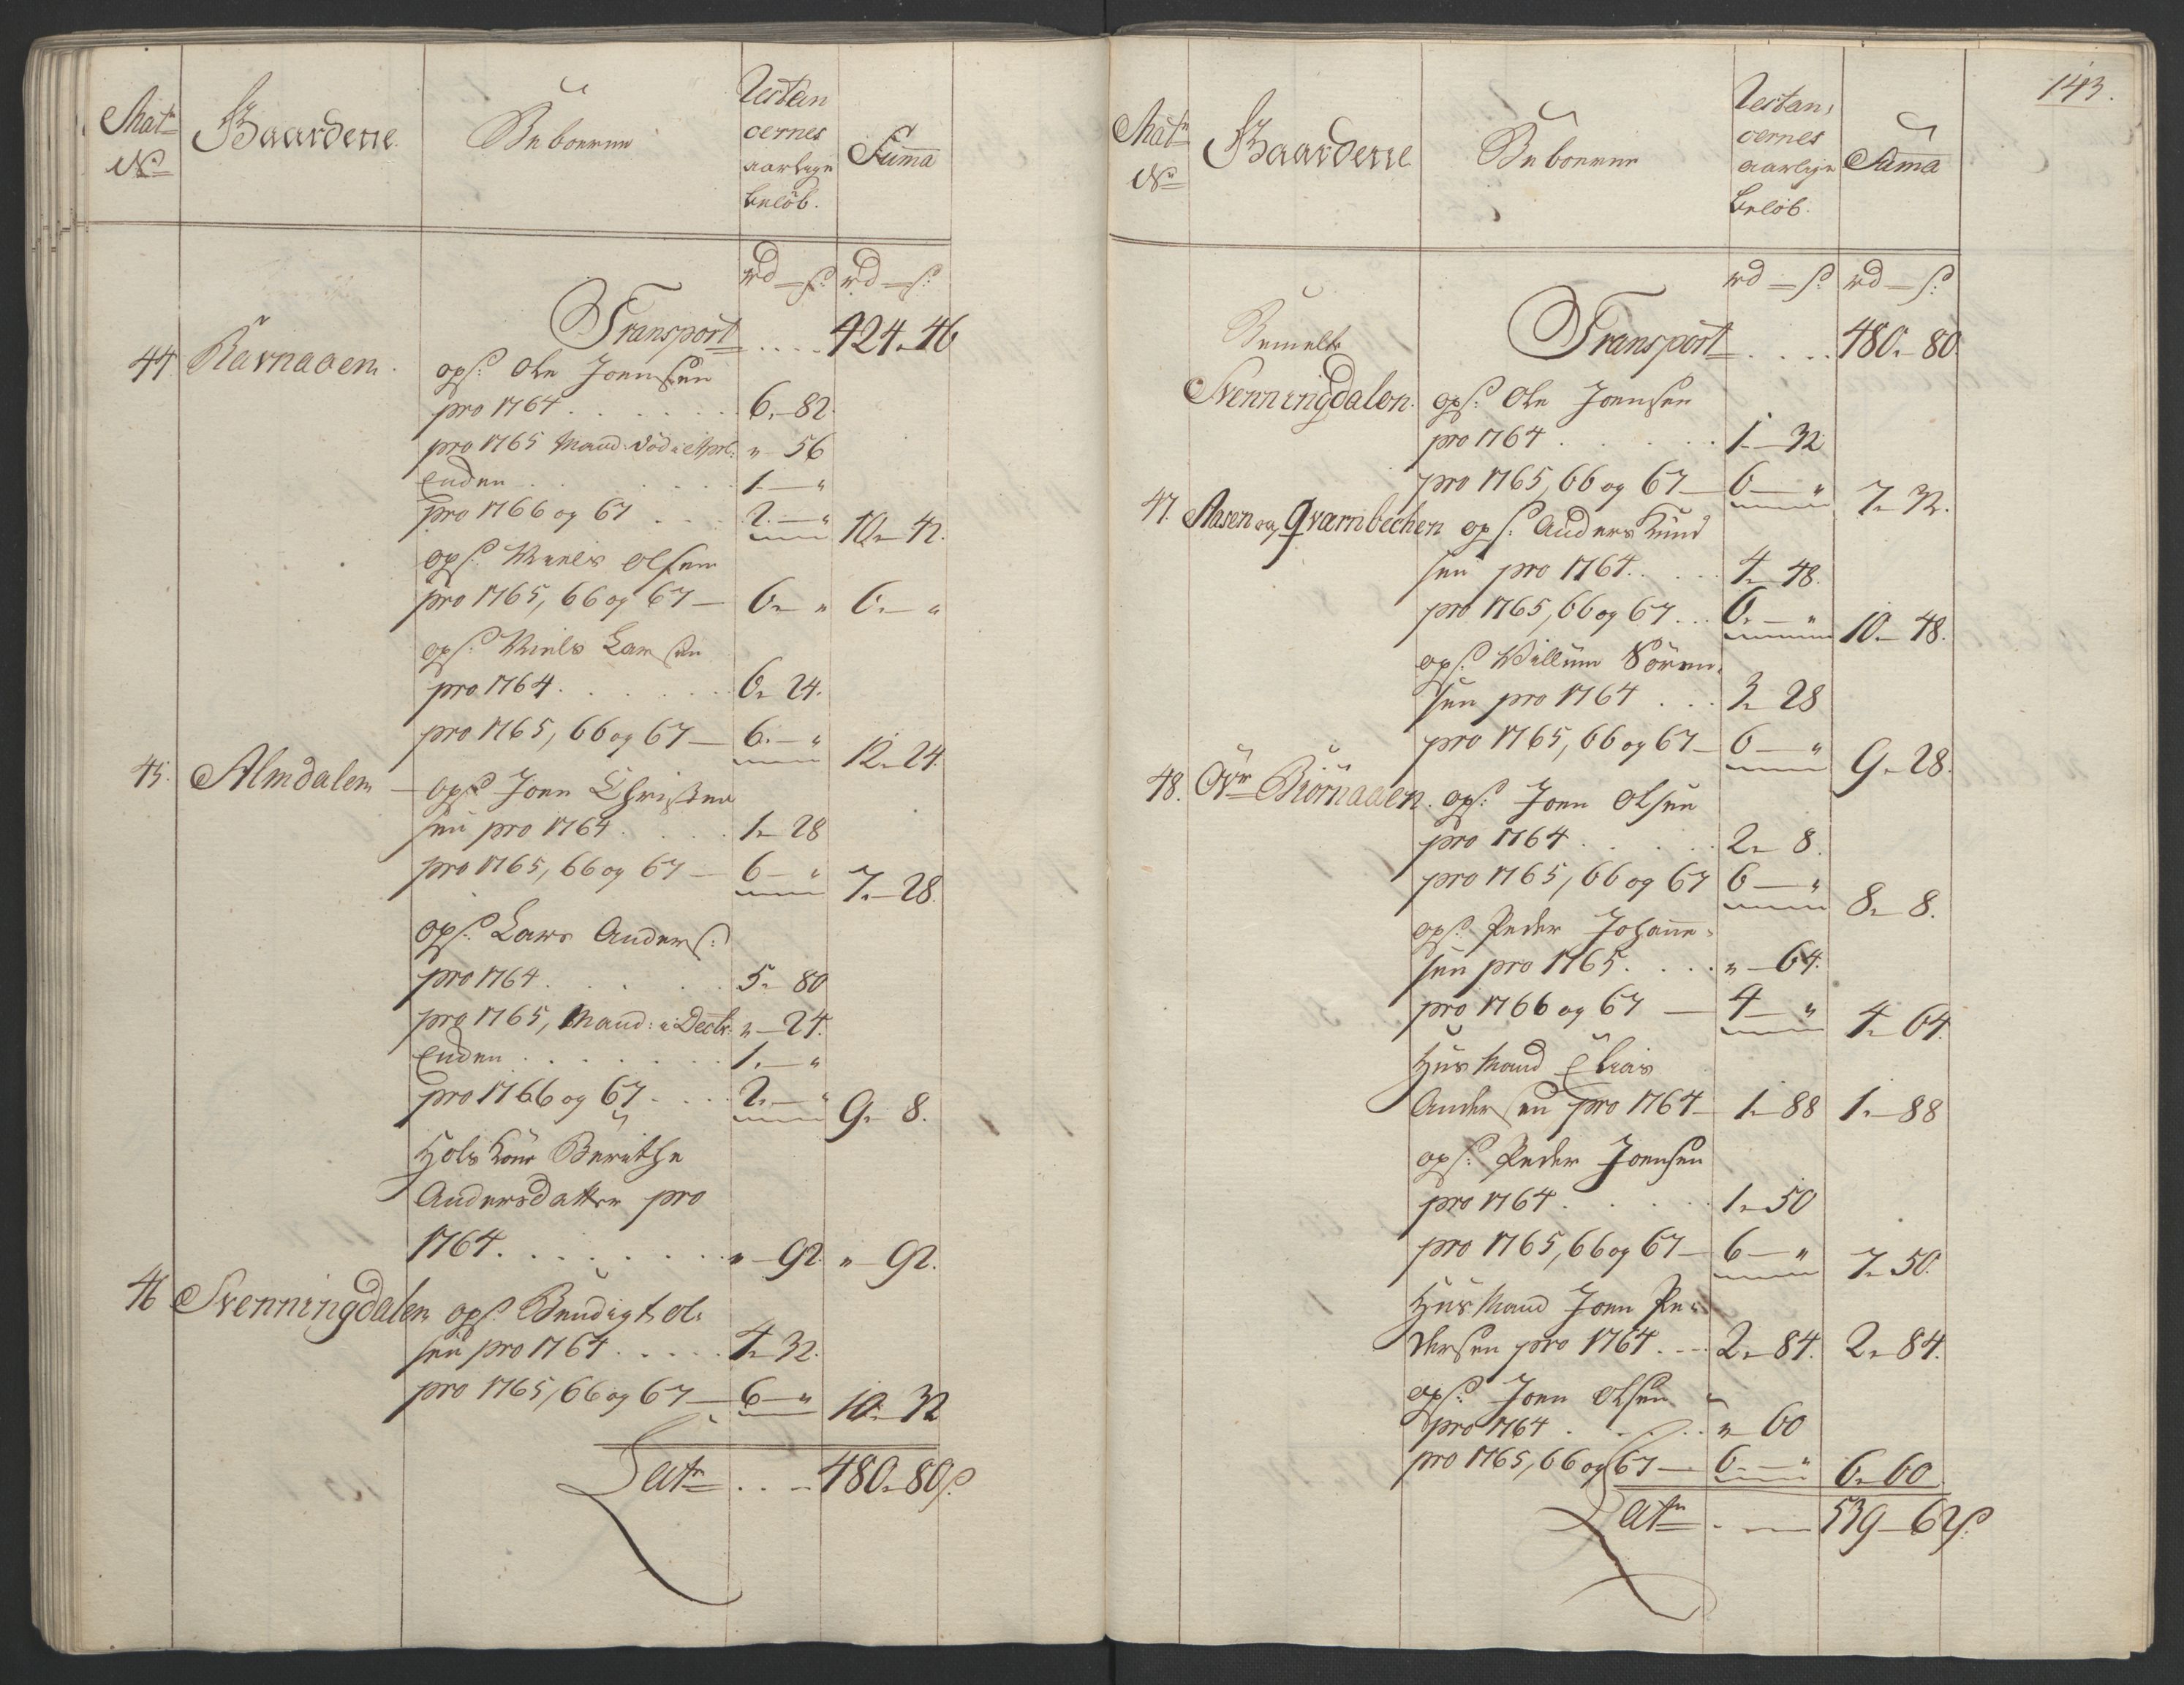 Mat:
No
Gaardene.
Beboerne
Restan
cernes
aarlige
beløb.
Suma
rd — s: rd — s:
Transport . . . . 424 - 46
44 Ravnaaen. ops: Ole Joensen
pro 1764 . . . . . . 6 - 82.
pro 1765 Mand: død i Apr: " - 56
Enden . . . . . . 1 - "
pro 1766 og 67 . . . 2 - " 10 - 42.
ops: Niels Olsen
pro 1765, 66 og 67 — 6 - " 6 - "
ops: Niels Larsen
pro 1764 . . . . . . 6 - 24.
pro 1765, 66 og 67 — 6 - " 12 - 24.
45. Almdalen — ops: Joen Christen
sen pro 1764 . . . . 1 - 28
pro 1765, 66 og 67 — 6 - " 7 - 28.
ops: Lars Anders:
pro 1764 . . . . . . 5 - 80
pro 1765, Mand: i Decbr: " - 24.
Enden . . . . . . 1 - "
pro 1766 og 67 . . . . 2 - " 9 - 8.
Berithe
Andersdatter pro
1764 . . . . . . . . " - 92. " - 92.
46 Svenningdalen ops: Bendigt Ol-
sen pro 1764 . . . . . 4 - 32.
pro 1765, 66 og 67 — 6 - " 10 - 32
Latr . . - 480 - 80 s:
143.
Mat:
No
Gaardene
Beboerne
Restan,
cernes
aarlige
beløb.
Suma
rd — s: rd — s:
Transport . . . . 480 - 80.
Bemelte
Svenningdalen. ops: Ole Joensen
pro 1764 . . . . . . 1 - 32
pro 1765, 66 og 67 — 6 - " 7 - 32.
47. Aasen og Qvarnbechen ops: Anders Knud
sen pro 1764 . . . . . 4 - 48.
pro 1765, 66 og 67 . . . 6 - " 10 - 48.
ops: Willum Sören-
sen pro 1764 . . . 3 - 28
pro 1765, 66 og 67 — 6 - " 9 - 28.
48. Övr Biörnaaen. ops: Joen Olsen
pro 1764 . . . . . . 2 - 8.
pro 1765, 66 og 67 6 - " 8 - 8.
ops: Peder Johanne-
sen pro 1765 . . . . " - 64.
pro 1766 og 67 — 4 - " 4 - 64.
Husmand Elias
Andersen pro 1764 — 1 - 88 1 - 88
ops: Peder Joensen
pro 1764 . . . . . . 1 - 50
pro 1765, 66 og 67 — 6 - " 7 - 50.
Husmand Joen Pe-
dersen pro 1764 . . . 2 - 84. 2 - 84.
ops: Joen Olsen
pro 1764 . . . . . . " - 60
pro 1765, 66 og 67 — 6 - " 6 - 60
Latr . — 539 - 62 s: